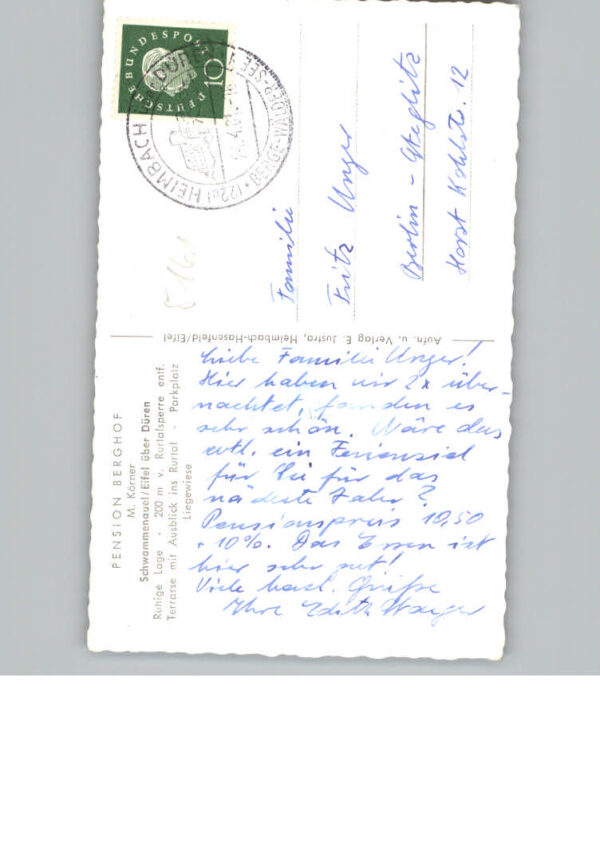 PENSION BERGHOF
M. Körner
Schwammenauel/Eifel über Düren
Ruhige Lage · 200 m v. Rurtalsperre entf.
Terrasse mit Ausblick ins Rurtal · Parkplatz
Liegewiese
Liebe Familie Unger!
Hier haben wir 2x über-
nachtet, fanden es
sehr schön. Wäre das
evtl. ein Ferienziel
für Sie für das
nächste Jahr?
Pensionspreis 10,50
+ 10%. Das Essen ist
hier sehr gut!
Viele herzl. Grüße
Ihre Edith
Aufn. u. Verlag E. Justra, Heimbach-Hasenfeld/Eifel
DEUTSCHE BUNDESPOST
10
(22c) HEIMBACH
BERGE-WÄLDER-SEE
Familie
Fritz Unger
Berlin - Steglitz
Horst Kohlstr. 12